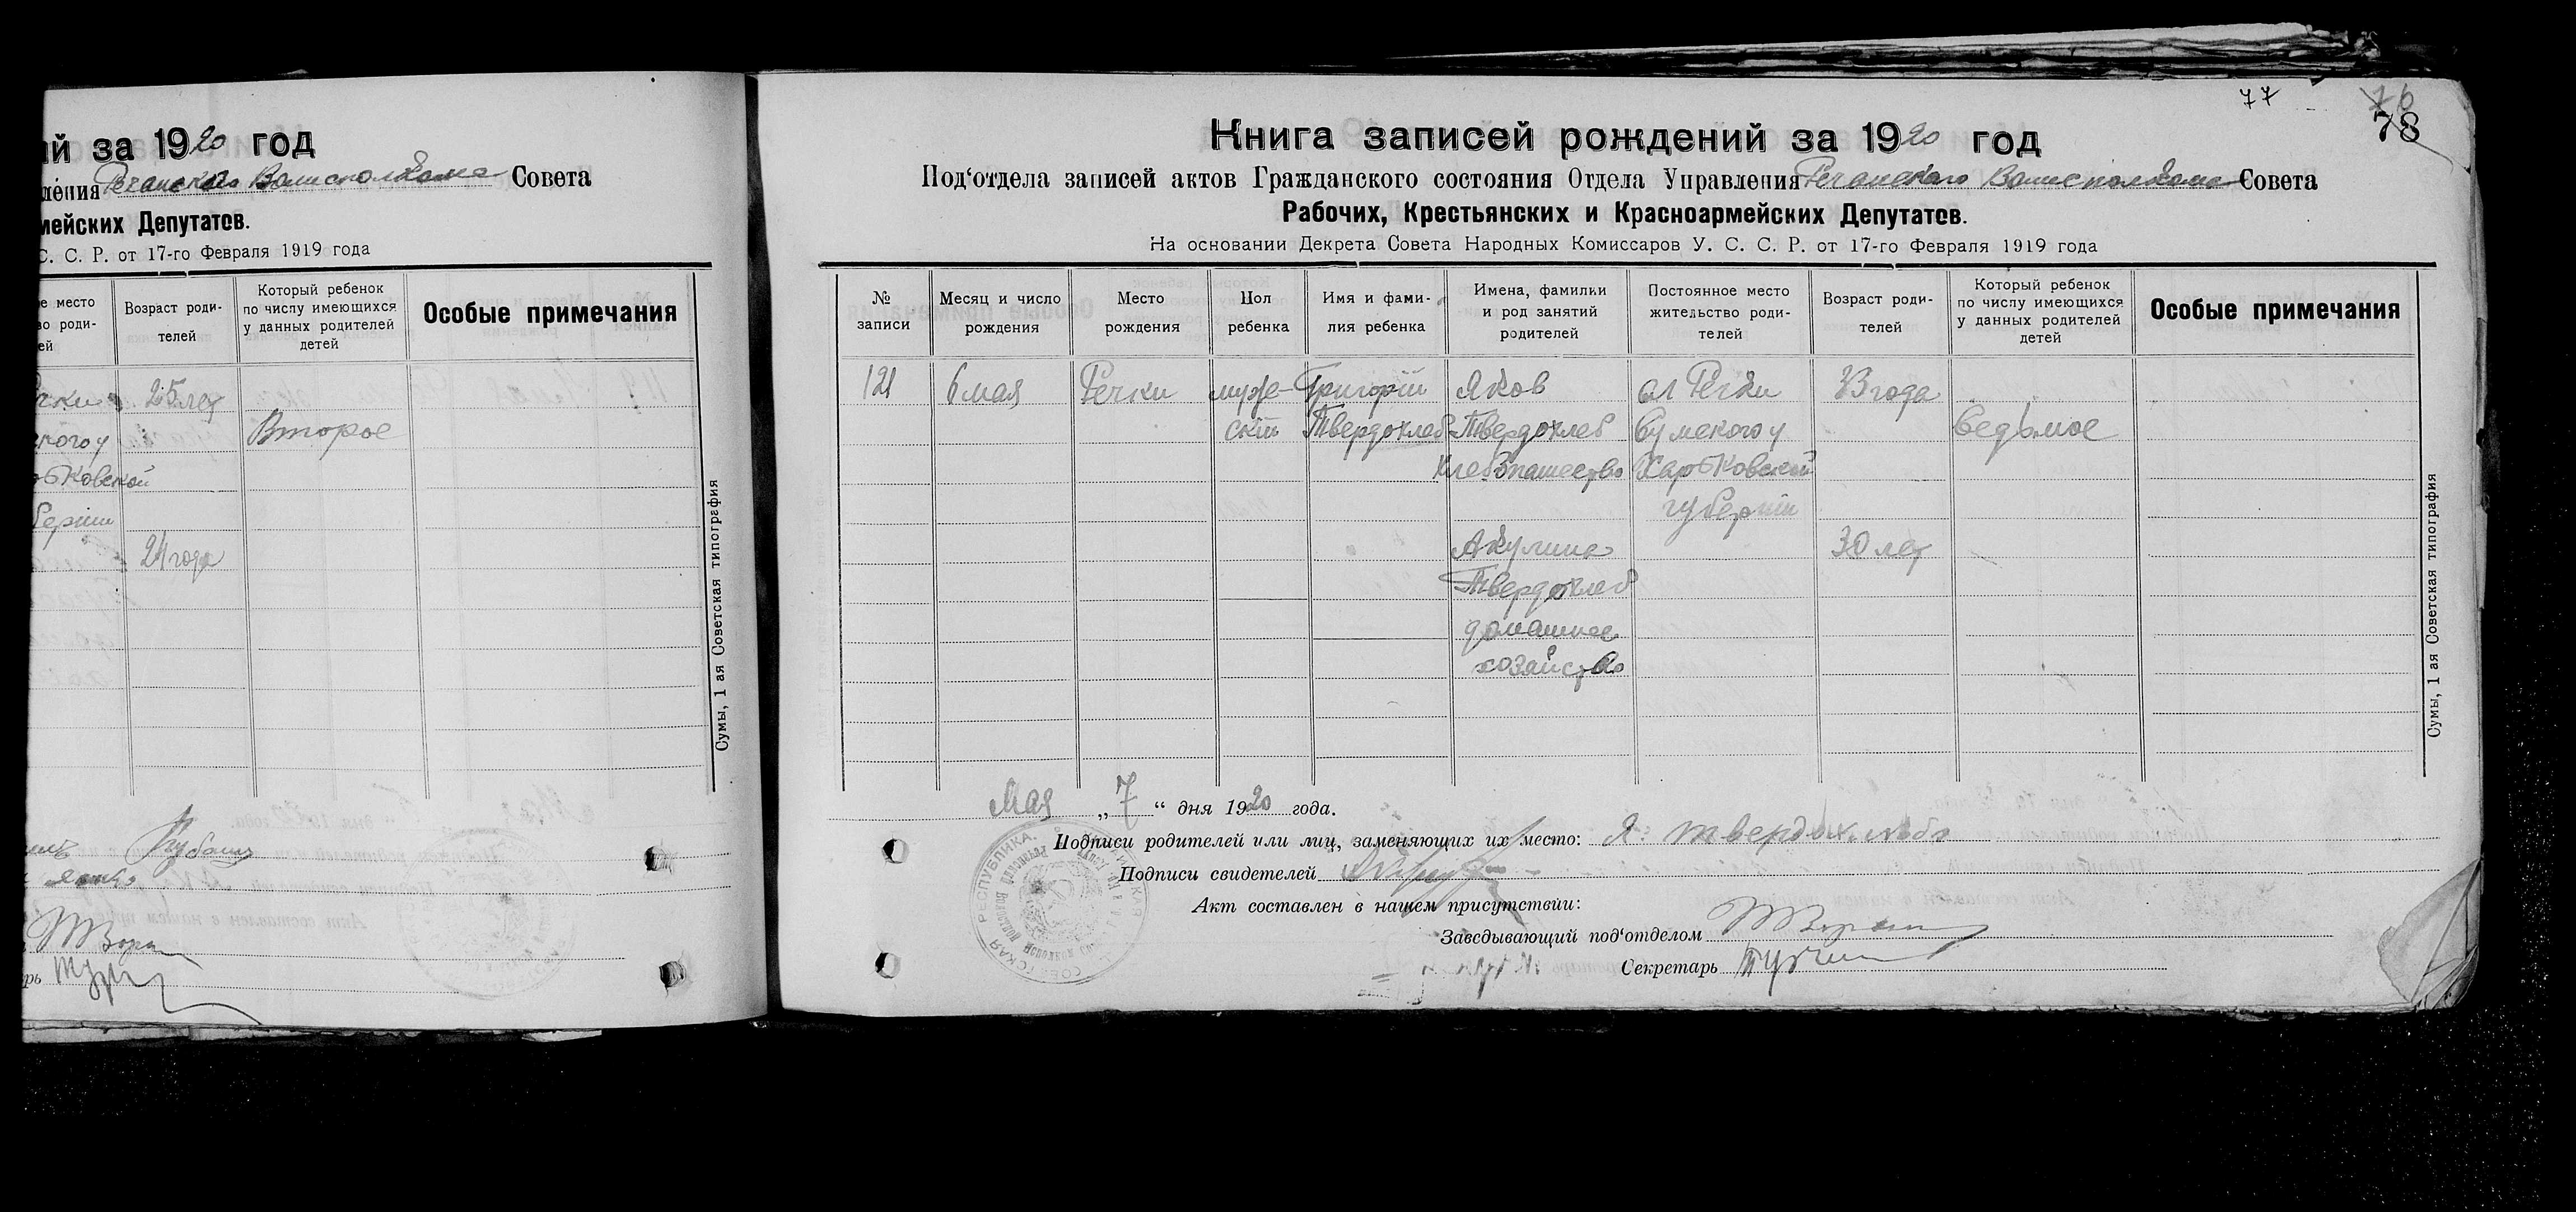 ий за 1920 год
ления Речанского Волисполкома Совета
мейских Депутатов.
С. С. Р. от 17-го Февраля 1919 года
е место
во роди-
ей
Возраст роди-
телей
Который ребенок
по числу имеющихся
у данных родителей
детей
Особые примечания
25 лет
ского у
Второе
ьковской
бернии
24 года
Сумы, 1 ая Советская типография
77
76
78
Книга записей рождений за 1920 год
Под‘отдела записей актов Гражданского состояния Отдела Управления Речанского Волисполкома Совета
Рабочих, Крестьянских и Красноармейских Депутатов.
На основании Декрета Совета Народных Комиссаров У. С. С. Р. от 17-го Февраля 1919 года
№
записи
Месяц и число
рождения
Место
рождения
Пол
ребенка
Имя и фами-
лия ребенка
Имена, фамилки
и род занятий
родителей
Постоянное место
жительство роди-
телей
Возраст роди-
телей
Который ребенок
по числу имеющихся
у данных родителей
детей
Особые примечания
121 6 мая Речки муже- Григорій Яков сл Речки 33 года
скій Твердохлеб Твердохлеб Сумского у Седьмое
хлебопашество Харьковской
губерніи
Акулина 30 лет
Твердохлеб
домашнее
хозяйство
Сумы, 1 ая Советская типография
Мая „ 7 “ дня 1920 года.
Подписи родителей или лиц, заменяющих их место: Я. Твердохлеб
Подписи свидетелей
Акт составлен в нашем присутствии:
Заведывающий под‘отделом
Секретарь